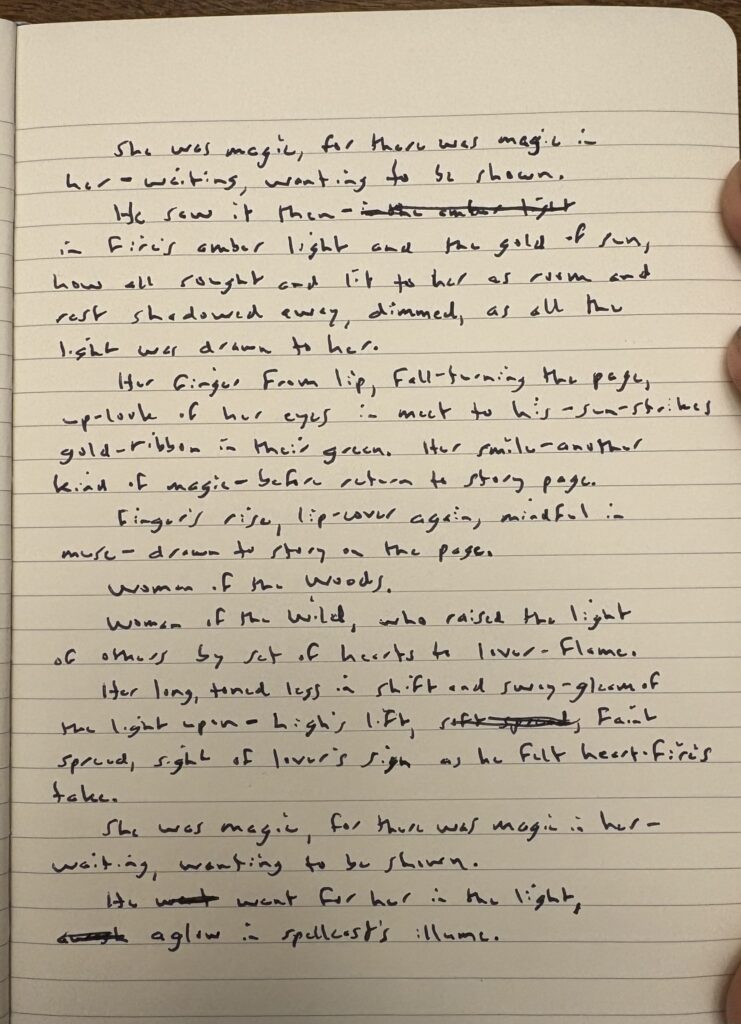 She was magic, for there was magic in
her-waiting, wanting to be shown.
He saw it then- in the amber light
in fire's amber light and the gold of sun,
how all sought and lit to her as room and
rest shadowed away, dimmed, as all the
light was drawn to her.
Her finger from lip, fall-turning the page,
up-look of her eyes in meet to his-sun-strikes
gold-ribbon in their green. Her smile-another
kind of magic-before return to story page.
Finger's rise, lip-cover again, mindful in
muse- drawn to story on the page.
Woman of the Woods.
Woman of the Wild, who raised the light
of others by set of hearts to lover-flame.
Her long, toned legs in shift and sway-gleam of
the light upon- high's lift, soft spread, faint
spread, sight of lover's sign as he felt heart-fire's
take.
She was magic, for there was magic in her-
waiting, wanting to be shown.
He went for her in the light,
aglow in spellcast's illume.